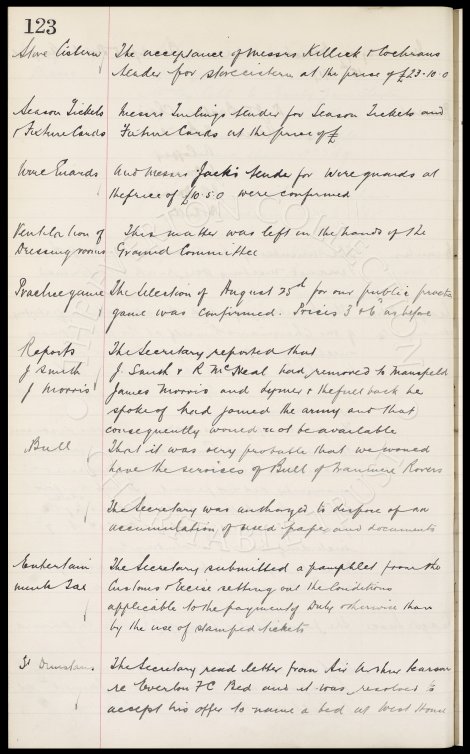 123
Stove Cistern The acceptance of Messrs Killick & Cochrans
tender for stove cistern at the price of £23·10·0
Season Tickets Messrs tender for Season Tickets and
& Fixture Cards Fixture Cards at the price of £
Wire Guards And Messrs Jack's tender for wire guards at
the price of £10·5·0 were confirmed
Ventilation of This matter was left in the hands of the
Dressing rooms Ground Committee
Practice game The selection of August 25th for our public practice
game was confirmed. Prices 3d & 6d as before
Reports The Secretary reported that
J Smith J. Smith & R McNeal had removed to Mansfield
J Morris James Morris and & the full back he
spoke of had joined the army and that
consequently would not be available
Bull That it was very probable that we would
have the services of Bull of Tranmere Rovers
The Secretary was authorized to dispose of an
accumulation of used paper and documents
Entertain The Secretary submitted a pamphlet from the
ments Tax Customs & Excise setting out the Conditions
applicable to the payment of Duty otherwise than
by the use of stamped tickets
St Dunstans The Secretary read letter from Sir Arthur Pearson
re Everton FC Bed and it was resolved to
accept his offer to name a bed at West House